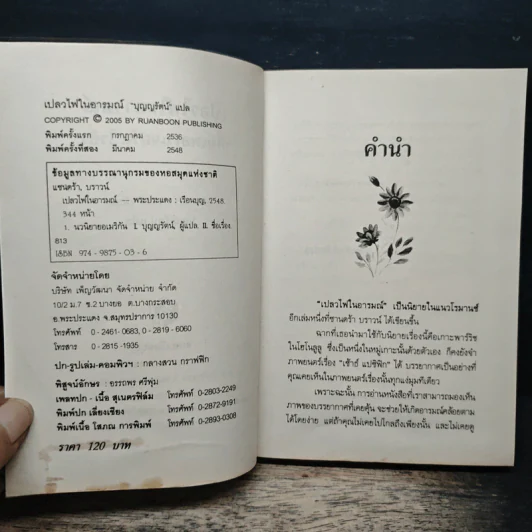 เปลวไฟในอารมณ์ "บุญญรัตน์" แปล
COPYRIGHT © 2005 BY RUANBOON PUBLISHING
พิมพ์ครั้งแรก กรกฎาคม 2536
พิมพ์ครั้งที่สอง มีนาคม 2548
ข้อมูลทางบรรณานุกรมของหอสมุดแห่งชาติ
แซนดร้า, บราวน์
เปลวไฟในอารมณ์ -- พระประแดง : เรือนบุญ, 2548.
344 หน้า
1. นวนิยายอเมริกัน I. บุญญรัตน์, ผู้แปล II. ชื่อเรื่อง
813
ISBN 974 - 9875 - 03 - 6
จัดจำหน่ายโดย
บริษัท เพ็ญวัฒนา จัดจำหน่าย จำกัด
10/2 ม.7 ซ.2 บางยอ ต.บางกระสอบ
อ.พระประแดง จ.สมุทรปราการ 10130
โทรศัพท์ 0 - 2461- 0683, 0 - 2819 - 6060
โทรสาร 0 - 2815 -1935
ปก-รูปเล่ม-คอมพิวฯ : กลางสวน กราฟฟิก
พิสูจน์อักษร : อรรถพร ศรีพุ่ม
เพลทปก - เนื้อ สุเนตรฟิล์ม โทรศัพท์ 0-2803-2249
พิมพ์ปก เลี่ยงเชียง โทรศัพท์ 0-2872-9191
พิมพ์เนื้อ โสภณ การพิมพ์ โทรศัพท์ 0-2893-0308
ราคา 120 บาท
คำนำ
"เปลวไฟในอารมณ์" เป็นนิยายในแนวโรมานซ์
อีกเล่มหนึ่งที่ซานดร้า บราวน์ ได้เขียนขึ้น
ฉากที่เธอนำมาใช้กับนิยายเรื่องนี้คือเกาะพาร์ริช
ในโฮโนลูลู ซึ่งเป็นหนึ่งในหมู่เกาะนั้นด้วยตัวเอง ก็คงยังจำ
ภาพยนตร์เรื่อง "เซ้าธ์ แปซิฟิก" ได้ บรรยากาศเป็นอย่างที่
คุณเคยเห็นในภาพยนตร์เรื่องนั้นทุกแง่มุมทีเดียว
เพราะฉะนั้น การอ่านหนังสือที่เราสามารถมองเห็น
ภาพของบรรยากาศที่เคยคุ้น จะช่วยให้เกิดอารมณ์คล้อยตาม
ได้โดยง่าย แต่ถ้าคุณไม่เคยไปไกลถึงเพียงนั้น และไม่เคยดู